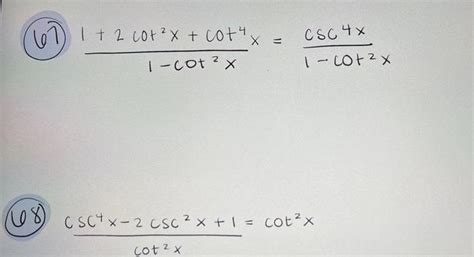 67) 1 + 2 cot²x + cot⁴x = csc⁴x
1 - cot²x 1 - cot²x
68) csc⁴x - 2 csc²x + 1 = cot²x
cot²x